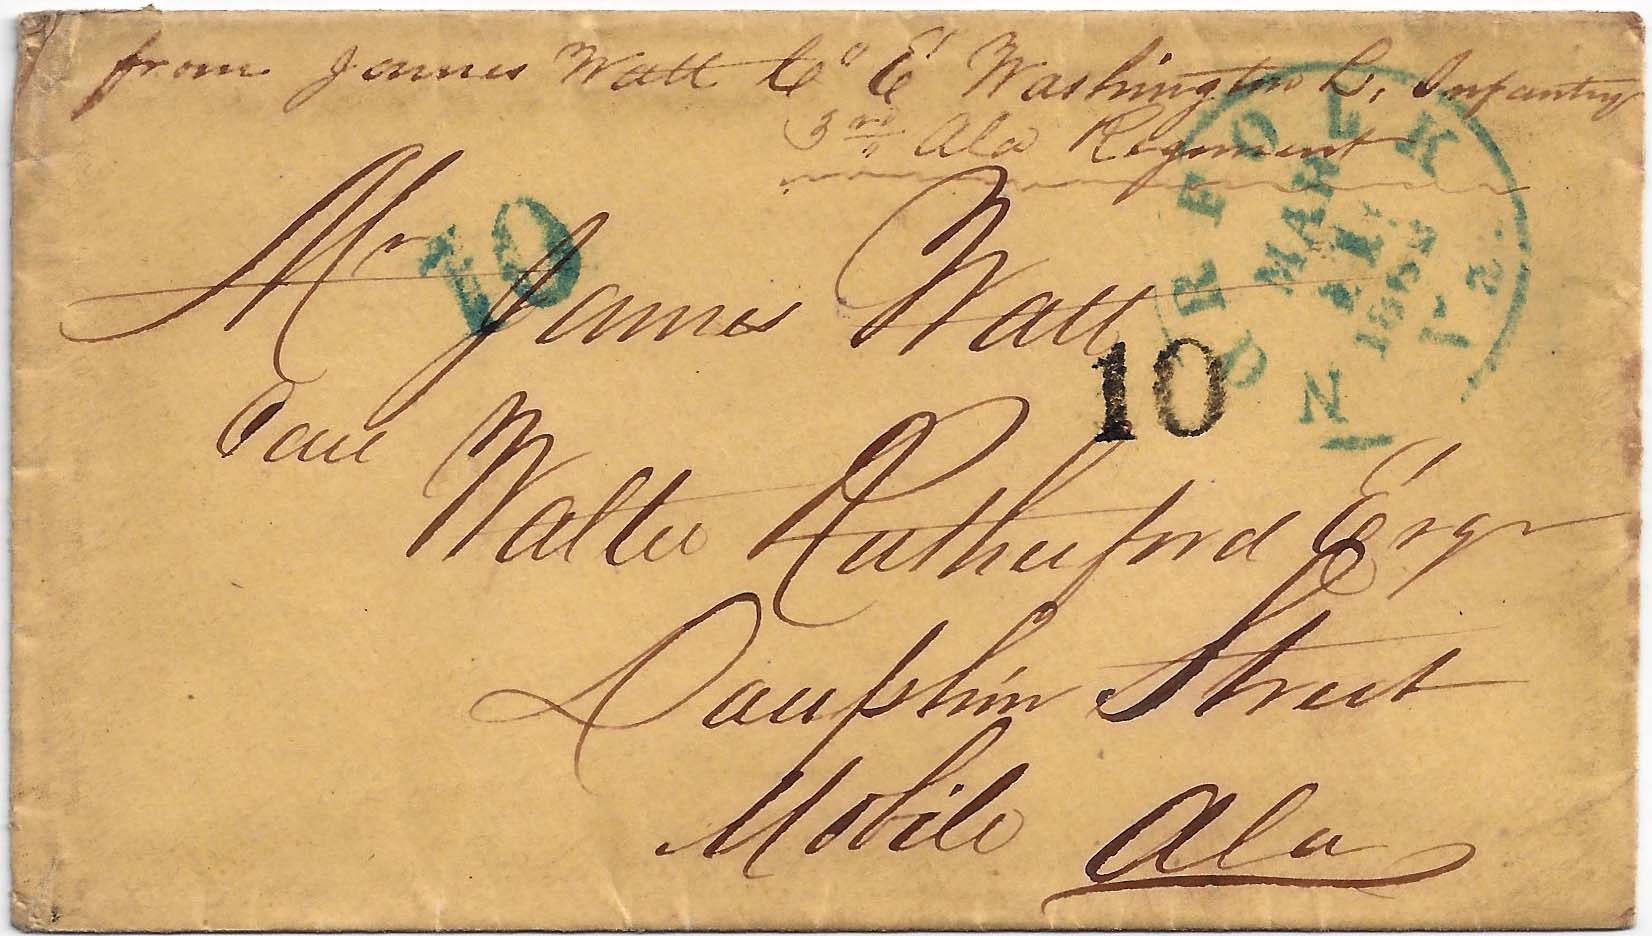 from James Watt Co "E" Washington L, Infantry
3rd Ala Regiment
NORFOLK Va.
MAR
1862
10
Mr James Watt
10
Care Walter Rutherford Esqr
Dauphin Street
Mobile Ala